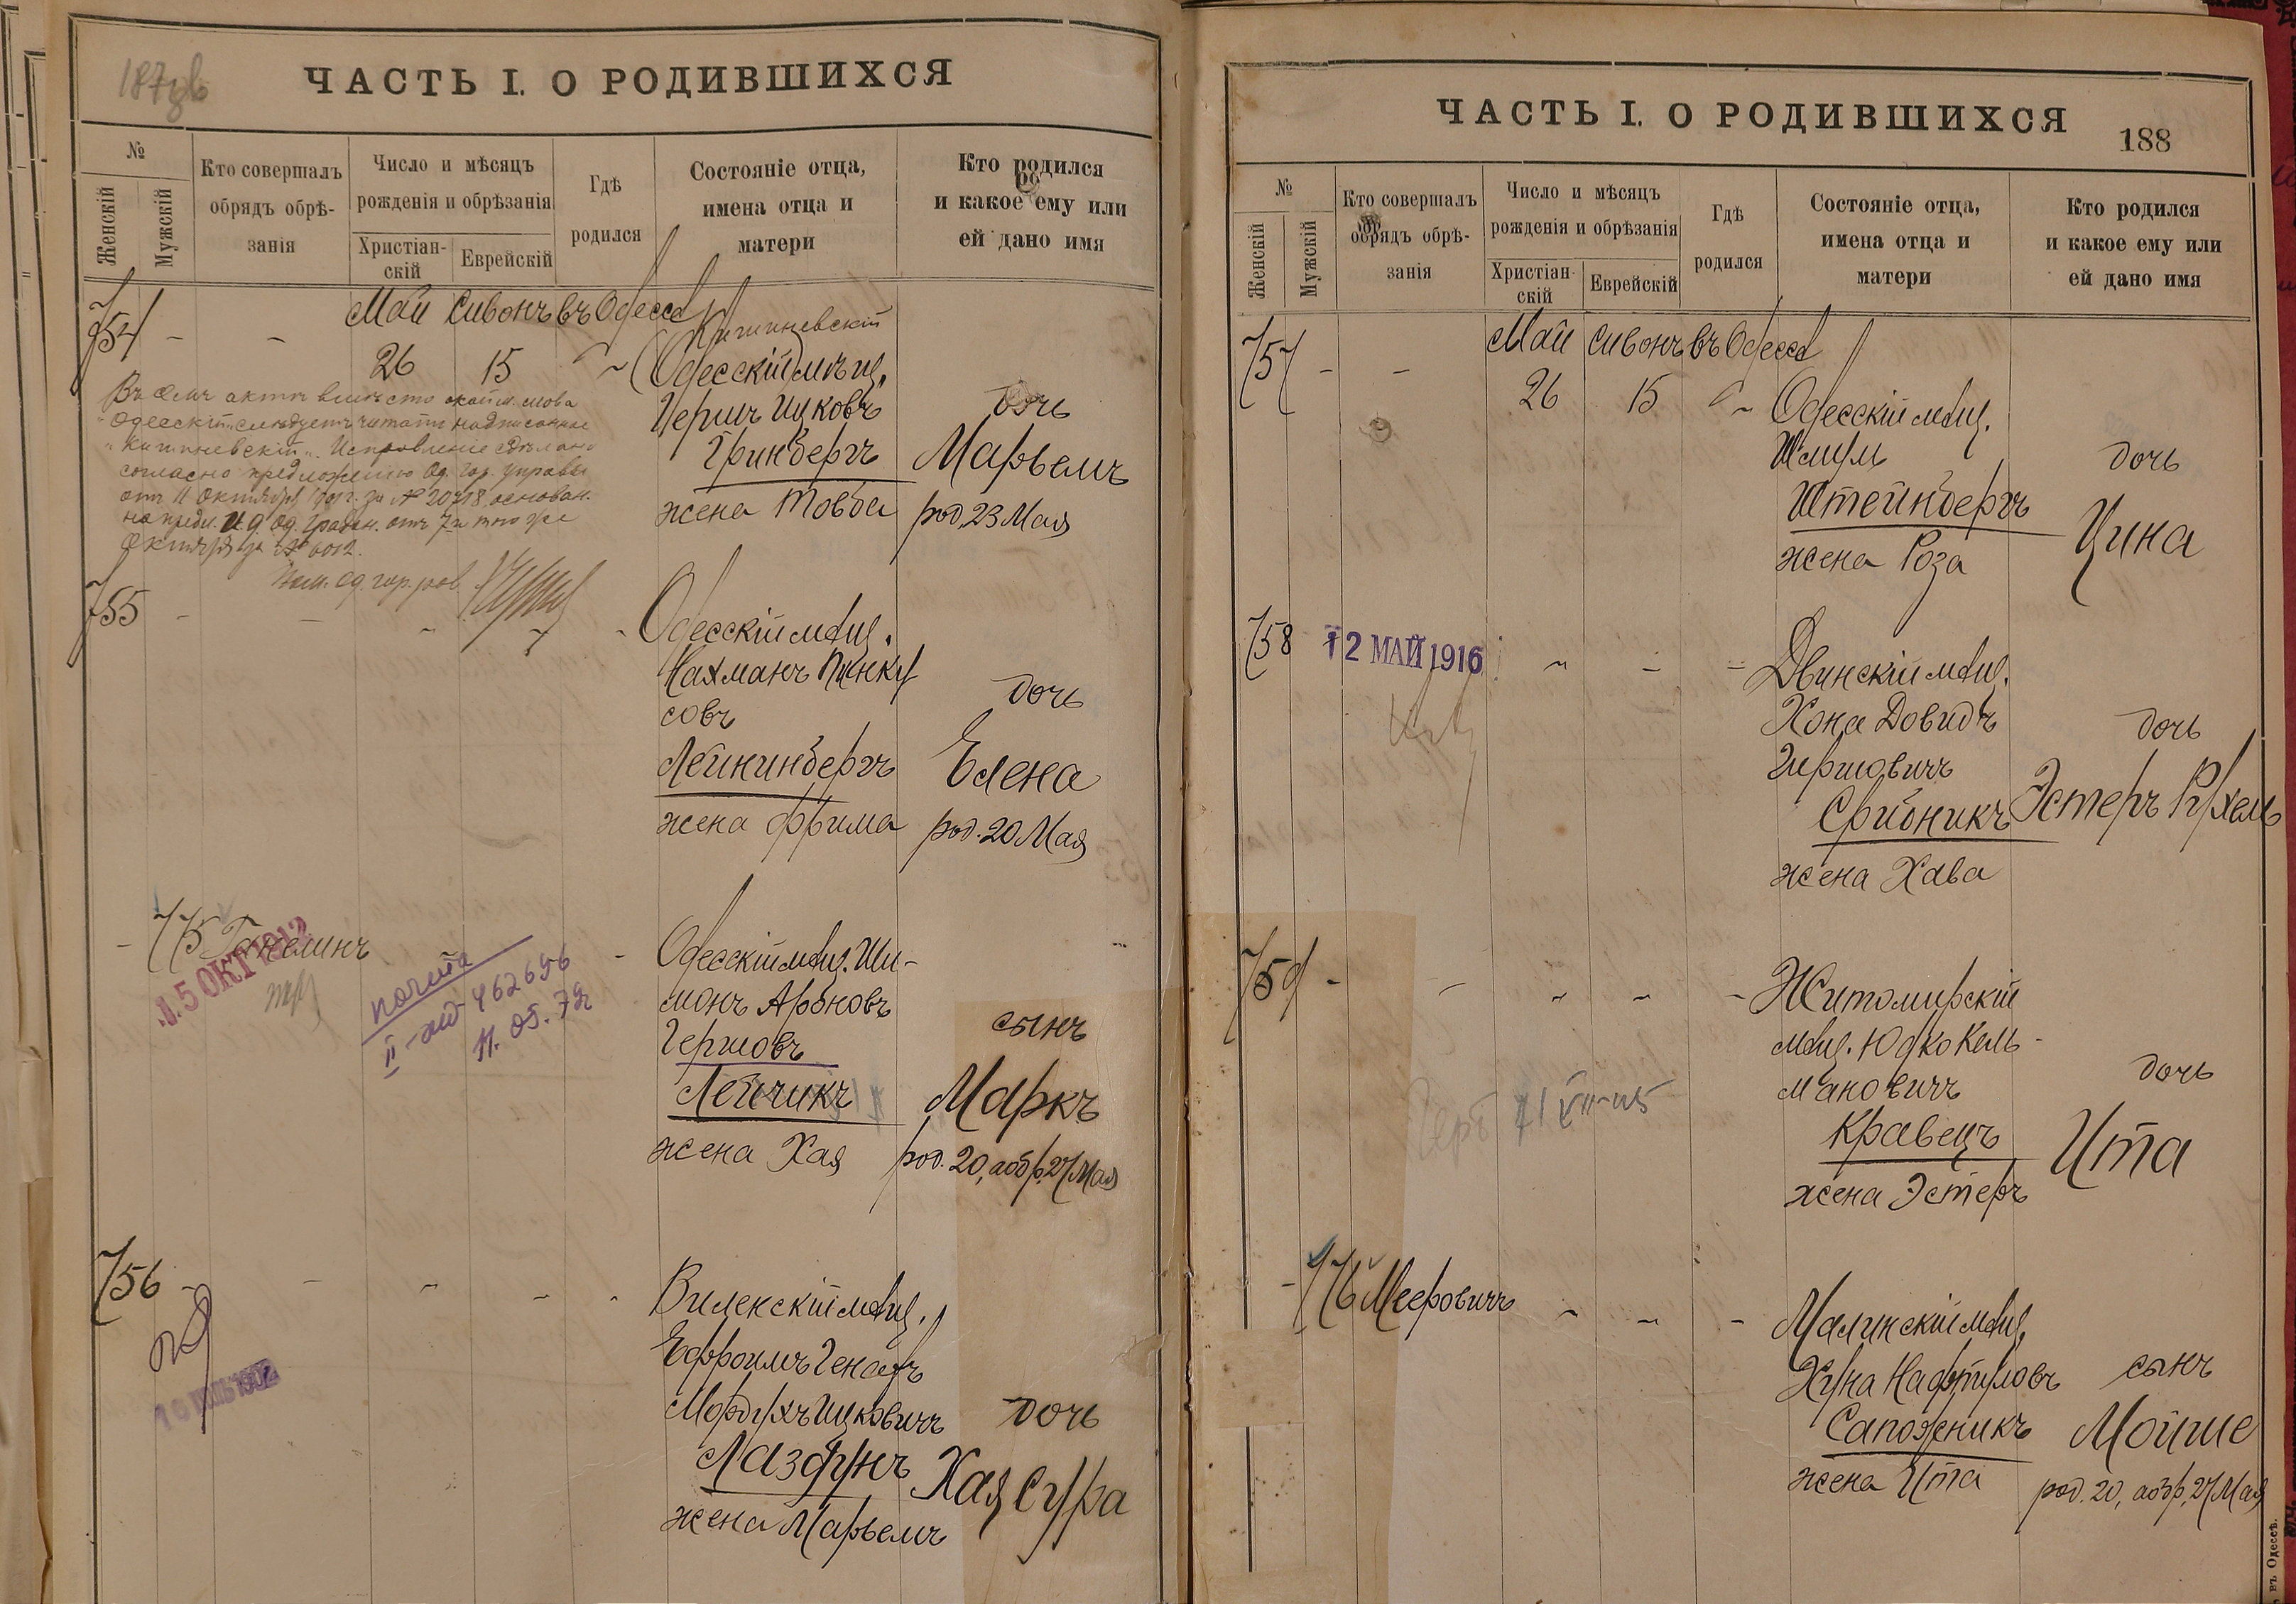 187об
ЧАСТЬ I. О РОДИВШИХСЯ
№
Женскій
Мужскій
Кто совершалъ
обрядъ обрѣ-
занія
Число и мѣсяцъ
рожденія и обрѣзанія
Христіан-
скій
Еврейскій
Гдѣ
родился
Состояніе отца,
имена отца и
матери
Кто родился
и какое ему или
ей дано имя
754 - - Май Сивонъ въ Одессѣ
26 15
Кишиневскій
Одесскій мѣщ.
Гершъ Ицковъ
Гринбергъ
жена Товба
дочь
Марьемъ
род. 23 Мая
Въ семъ актѣ вмѣсто окайм. слова
"Одесскій" слѣдуетъ читать надписанное
"Кишиневскій". Исправленіе сдѣлано
согласно предложенію Од. гор. управы
отъ 11 Октября 1901 г. за № 20718, основан.
на предл. И. д. Од. Градон. отъ 7го того же
Октября за № 6012.
Пом. Од. гор. рав.
755 - - - - -
Одесскій мѣщ.
Нахманъ Пинку
совъ
Лейнинбергъ
жена Фрима
дочь
Елена
род. 20 Мая
- 775 Ганелинъ
15 ОКТ 1912
почета
II-жд-462696
11.05.72
Одесскій мѣщ. Ши-
монъ Ароновъ
Гершовъ
Лейчикъ
жена Хая
сынъ
Маркъ
род. 20, а обр. 27 Мая
756 - - - - -
Виленскій мѣщ.
Ефроимъ Генахъ
Мордухъ Ицковичъ
Лазфунъ
жена Марьемъ
дочь
Хая Сура
ЧАСТЬ I. О РОДИВШИХСЯ
188
№
Женскій
Мужскій
Кто совершалъ
обрядъ обрѣ-
занія
Число и мѣсяцъ
рожденія и обрѣзанія
Христіан-
скій
Еврейскій
Гдѣ
родился
Состояніе отца,
имена отца и
матери
Кто родился
и какое ему или
ей дано имя
757 - - Май Сивонъ въ Одессѣ
26 15
Одесскій мѣщ.
Шмуль
Штейнбергъ
жена Роза
дочь
Цина
758 12 МАЙ 1916 - - -
Двинскій мѣщ.
Хона Довидъ
Гиршовичъ
Срибникъ
жена Хава
дочь
Эстеръ Рухель
759 - - - - -
Житомирскій
мѣщ. Юдко Кель-
мановичъ
Кравецъ
жена Эстеръ
дочь
Ита
- 776 Мееровичъ - - -
Малинскій мѣщ.
Хуна Нафтуловъ
Сапожникъ
жена Ита
сынъ
Мойше
род. 20, а обр. 27 Мая
въ Одессѣ.